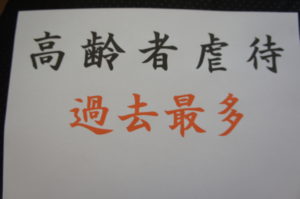 高齢者虐待
過去最多